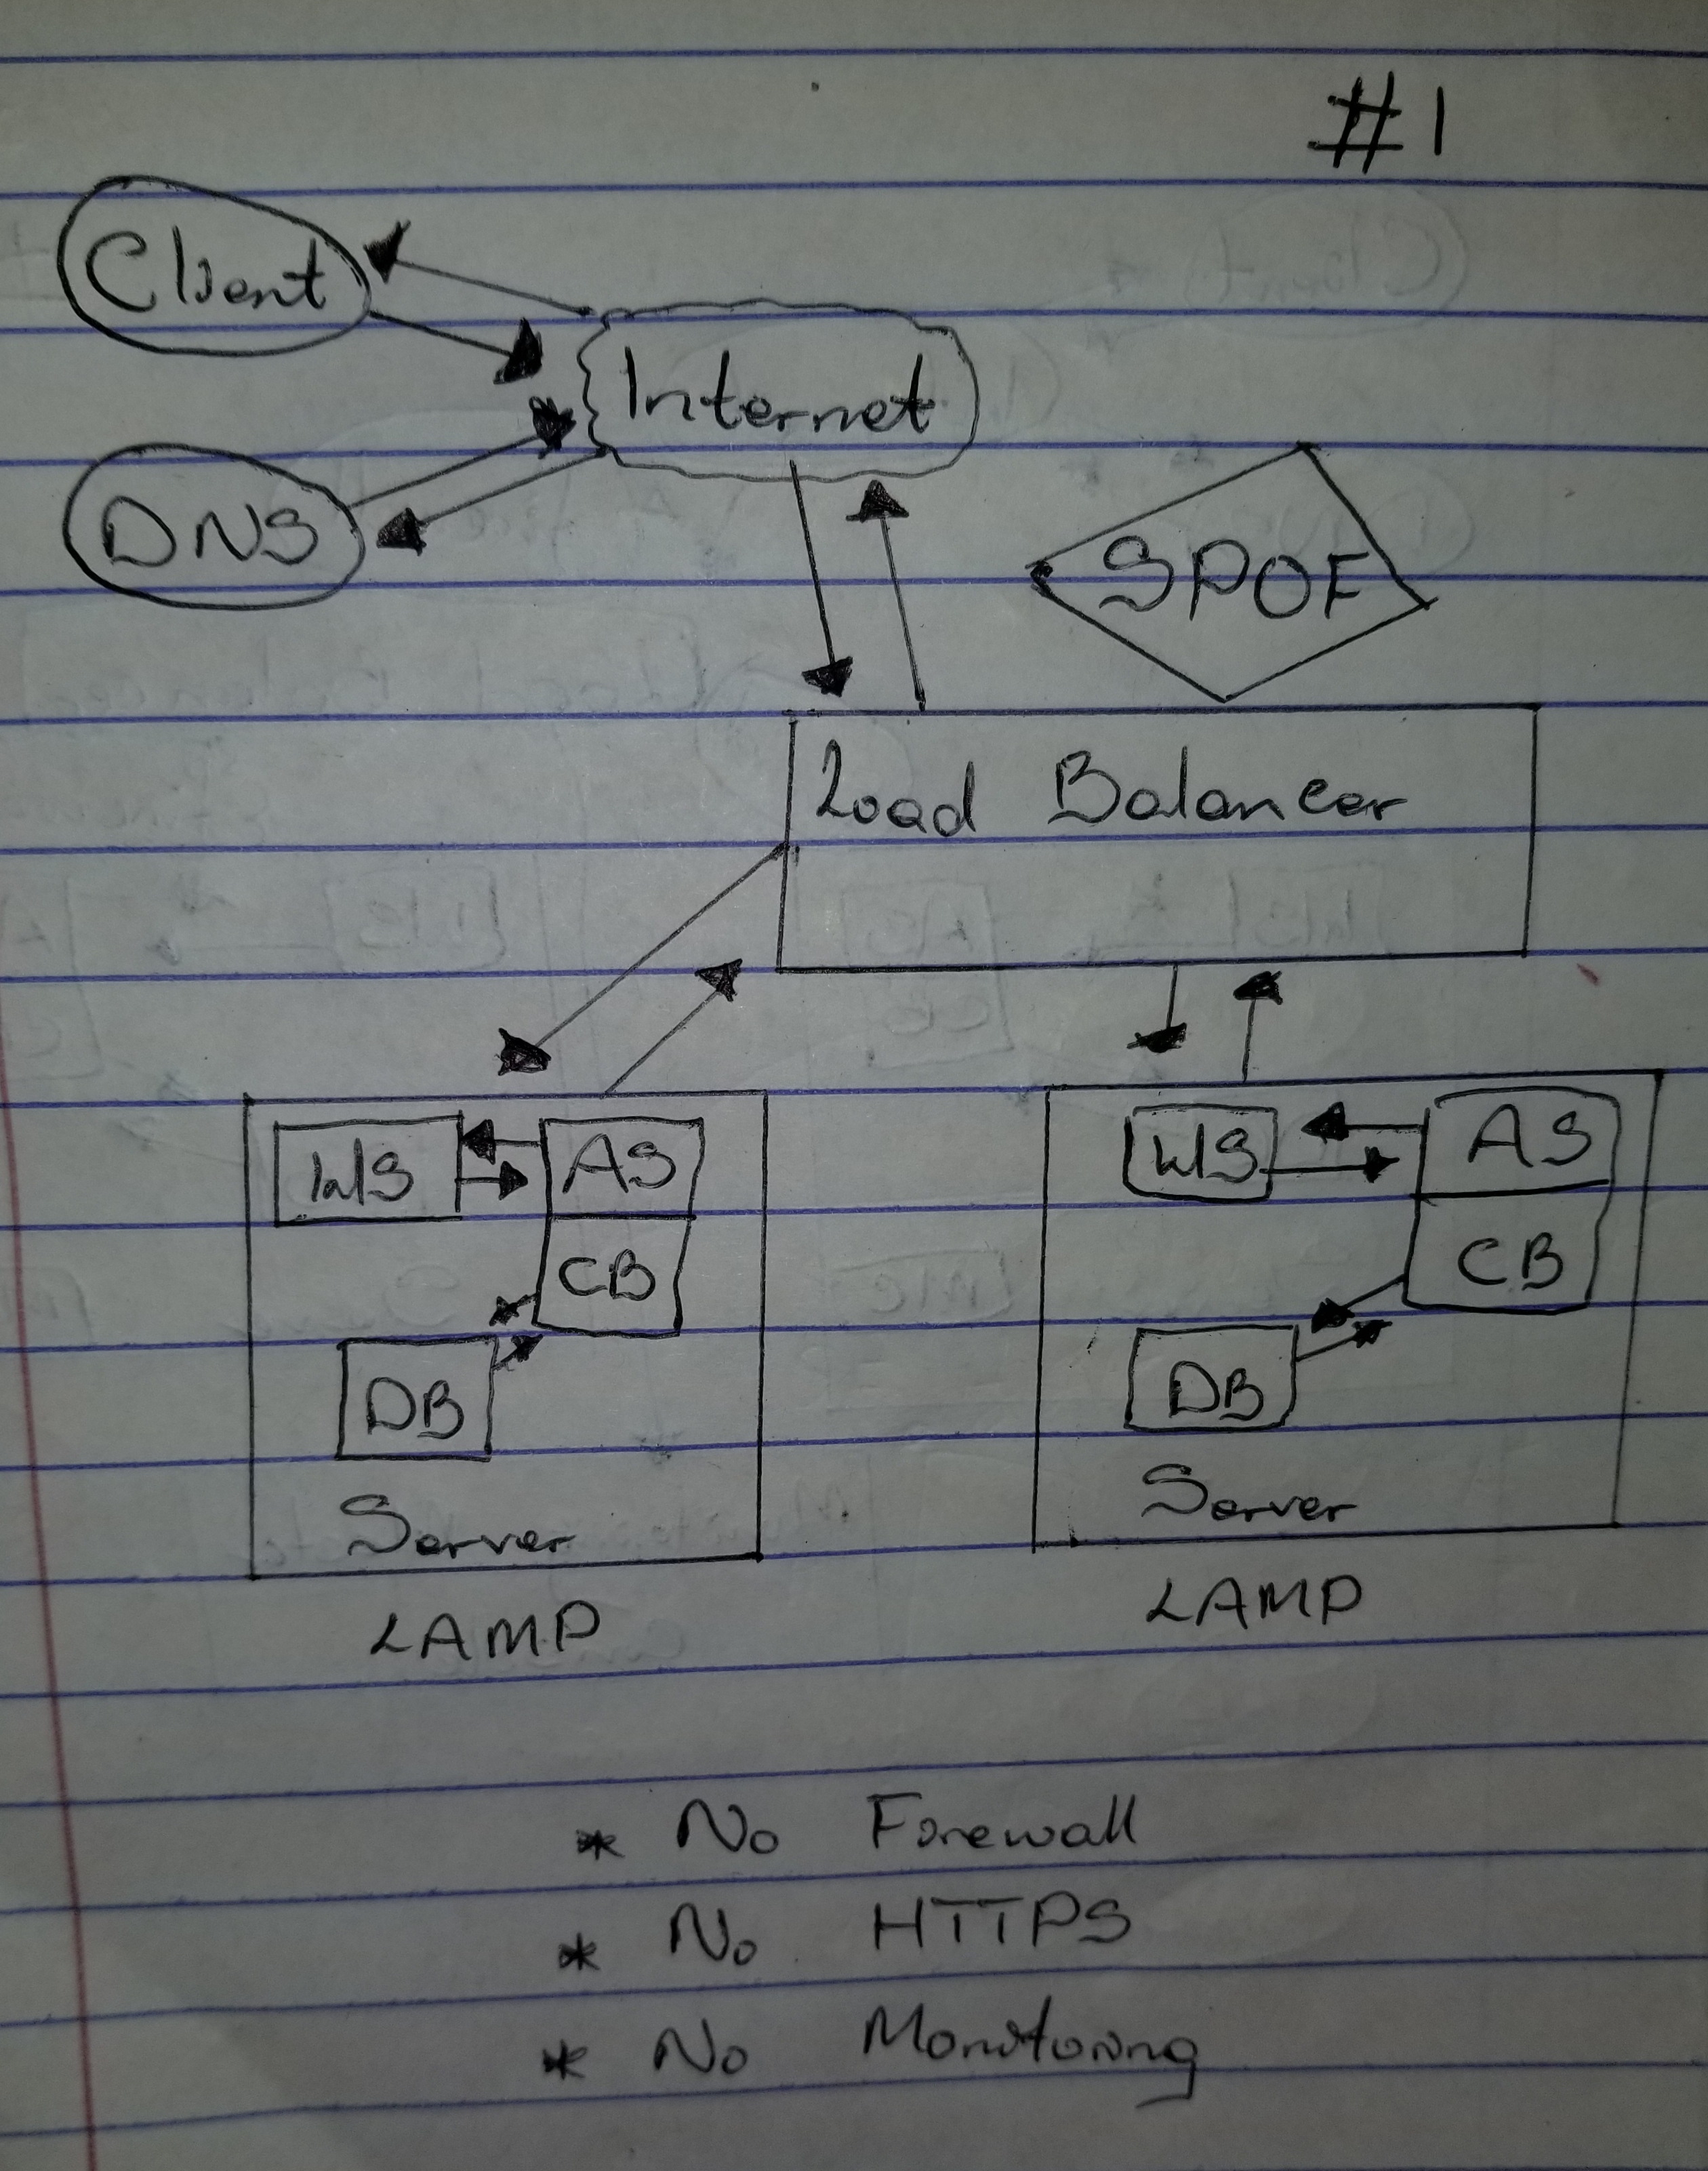 #1
Client
Internet
DNS
SPOF
Load Balancer
WS AS
CB
DB
Server
LAMP
WS AS
CB
DB
Server
LAMP
* No Firewall
* No HTTPS
* No Monitoring